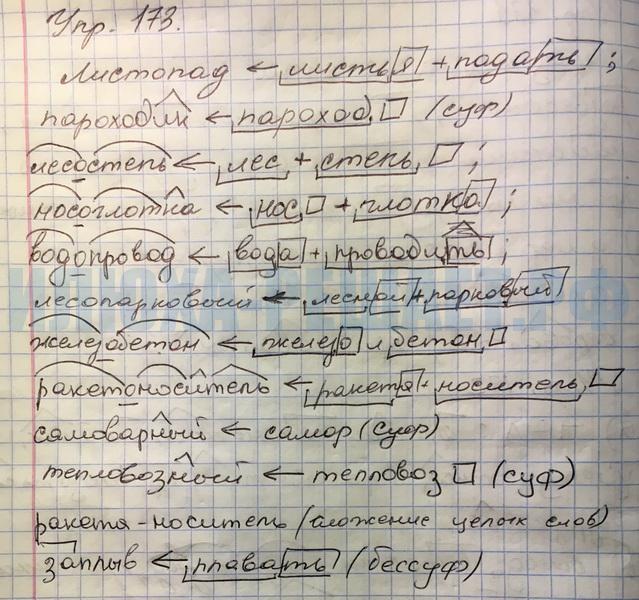 Упр. 173.
Листопад ← листья + падать;
пароходик ← пароход (суф)
лесостепь ← лес + степь;
носоглотка ← нос + глотка;
водопровод ← вода + проводить;
лесопарковый ← лесной + парковый
железобетон ← железо и бетон
ракетоноситель ← ракета + носитель
самоварный ← самор (суф)
тепловозный ← тепловоз (суф)
ракета-носитель (сложение целых слов)
заплыв ← плавать (бессуф)